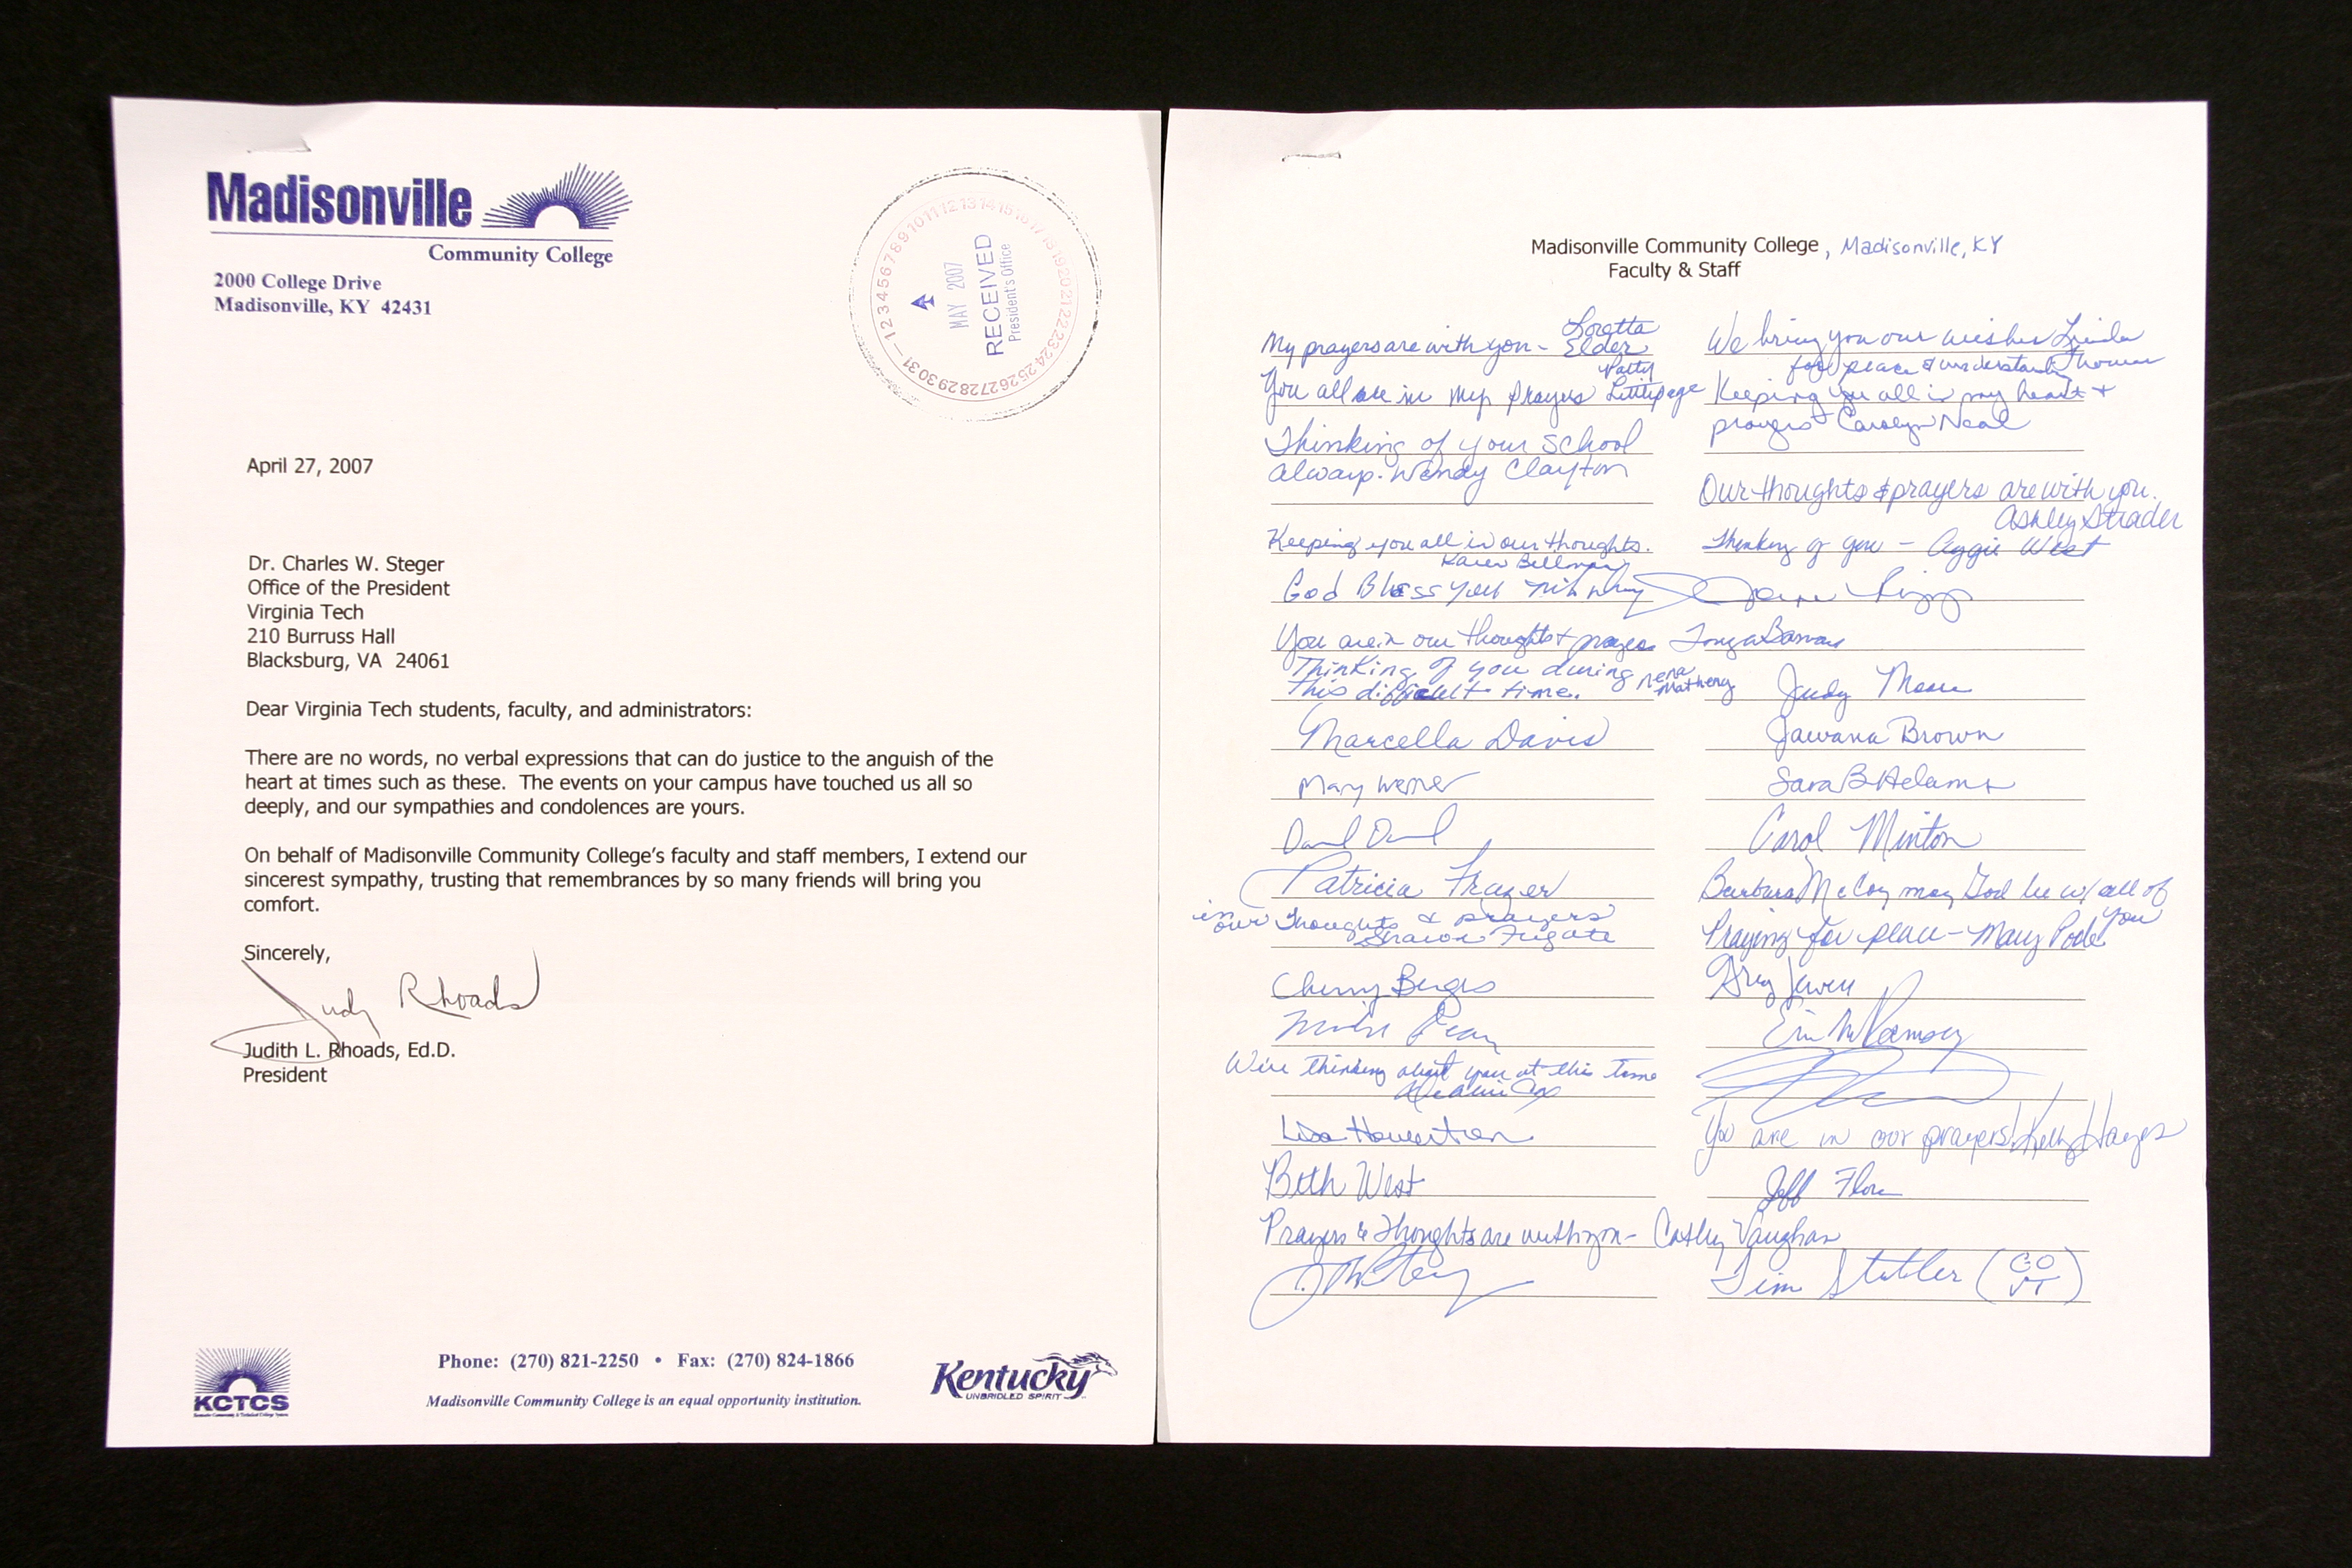 Madisonville
Community College
2000 College Drive
Madisonville, KY 42431
1 2 3 4 5 6 7 8 9 10 11 12 13 14 15 16 17 18 19 20 21 22 23 24 25 26 27 28 29 30 31
MAY 2007
RECEIVED
President's Office
April 27, 2007
Dr. Charles W. Steger
Office of the President
Virginia Tech
210 Burruss Hall
Blacksburg, VA 24061
Dear Virginia Tech students, faculty, and administrators:
There are no words, no verbal expressions that can do justice to the anguish of the
heart at times such as these. The events on your campus have touched us all so
deeply, and our sympathies and condolences are yours.
On behalf of Madisonville Community College's faculty and staff members, I extend our
sincerest sympathy, trusting that remembrances by so many friends will bring you
comfort.
Sincerely,
Judy Rhoads
Judith L. Rhoads, Ed.D.
President
KCTCS
Phone: (270) 821-2250 • Fax: (270) 824-1866
Madisonville Community College is an equal opportunity institution.
Kentucky
UNBRIDLED SPIRIT
Madisonville Community College, Madisonville, KY
Faculty & Staff
My prayers are with you - Loretta
Elder
You all are in my prayers Patty
Littlepage
Thinking of your school
always. Wendy Clayton
Keeping you all in our thoughts.
Karen Bellman
God Bless you
You are in our thoughts & prayers Tonya
Thinking of you during
this difficult time. Nena
Matheny
Marcella Davis
Mary Werner
Patricia Frazer
in our Thoughts & prayers
Sharon Fugate
Cherry Berges
We're thinking about you at this time
Cox
Lisa Howerton
Beth West
Prayers & Thoughts are with you - Cathy Vaughan
We bring you our wishes Linda
for peace & understanding Thomas
Keeping you all in my heart +
prayers Carolyn Neal
Our thoughts & prayers are with you.
Ashley Strader
Thinking of you - Aggie West
Judy Moore
Jawana Brown
Sara B
Carol Minton
Barbara McCoy may God be w/ all of
you
Praying for peace - Mary Poole
Greg Jewell
Erin M Ramsey
You are in our prayers! Kelly Hayes
Jeff
Tim Stabler (GO
VT)